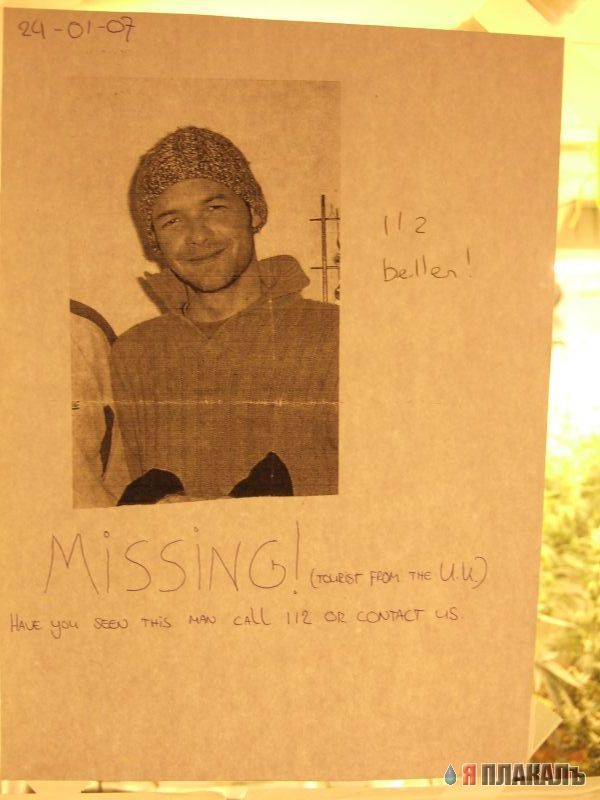 24-01-07
112
bellen!
MiSSiNG! (TOURIST FROM THE U.K.)
HAVE YOU SEEN THIS MAN CALL 112 OR CONTACT US
Я ПЛАКАЛЪ